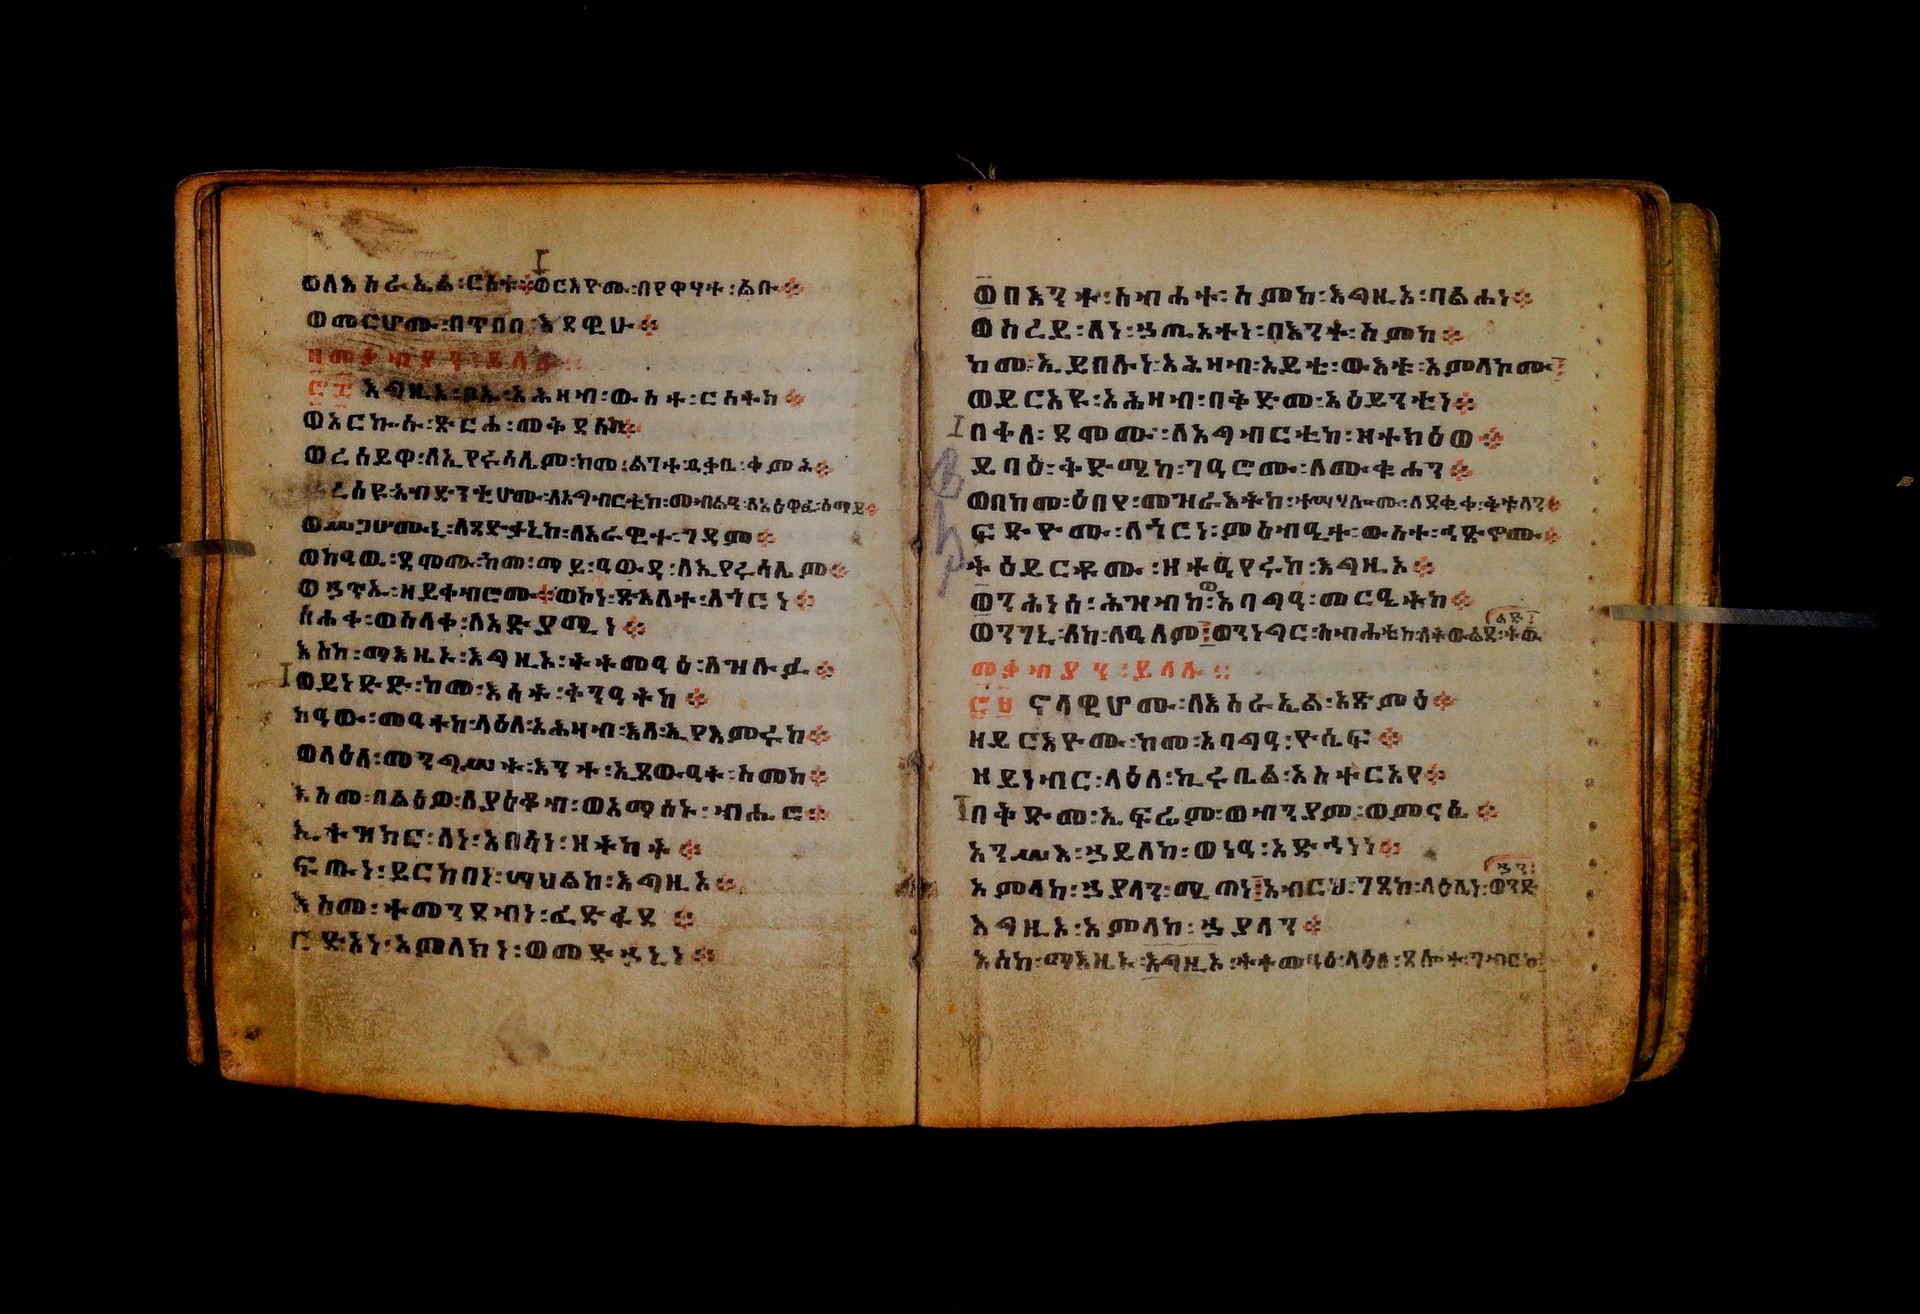 ወለእስራኤል፡ርስቱ። ወርእዮሙ፡በየዋሃተ፡ልቡ።
ወመርሆሙ፡በጥበበ፡እደዊሁ።
ዘመቃብያን፡ይላሉ።
፸፰ እግዚኦ፡ቦኡ፡አሕዛብ፡ውስተ፡ርስትከ።
ወአርኩሱ፡ጽርሐ፡መቅደስከ።
ወረሰይዋ፡ለኢየሩሳሌም፡ከመ፡ልገተ፡ዐቃቤ፡ቀምሕ።
ወረሰዩ፡አብድንቲሆሙ፡ለአግብርቲከ፡መብልዒ፡ለአዕዋፈ፡ሰማይ።
ወሥጋሆሙኒ፡ለጻድቃኒከ፡ለአራዊተ፡ገዳም።
ወከዓዉ፡ደሞሙ፡ከመ፡ማይ፡ዓውዳ፡ለኢየሩሳሌም።
ወኃጥኡ፡ዘይቀብሮሙ። ወኮነ፡ጽእለተ፡ለጎርነ።
ስሐቀ፡ወስላቀ፡ለአድያሚነ።
እስከ፡ማእዜኑ፡እግዚኦ፡ትትመዓዕ፡ለዝሉፉ።
ወይነድድ፡ከመ፡እሳት፡ቅንዓትከ።
ከዓው፡መዓትከ፡ላዕለ፡አሕዛብ፡እለ፡ኢየአምሩከ።
ወላዕለ፡መንግሥት፡እንተ፡ኢጸውዓት፡ስመከ።
እስመ፡በልዕዎ፡ለያዕቆብ፡ወአማሰኑ፡ብሔሮ።
ኢትዝክር፡ለነ፡አበሳነ፡ዘትካት።
ፍጡነ፡ይርከበነ፡ሣህልከ፡እግዚኦ።
እስመ፡ተመንደብነ፡ፈድፋደ።
ርድአነ፡አምላክነ፡ወመድኃኒነ።
ወበእንተ፡ስብሐተ፡ስምከ፡እግዚኦ፡ባልሐነ።
ወስረይ፡ለነ፡ኃጢአተነ፡በእንተ፡ስምከ።
ከመ፡ኢይበሉነ፡አሕዛብ፡አይቴ፡ውእቱ፡አምላክሙ።
ወይርአዩ፡አሕዛብ፡በቅድመ፡አዕይንቲነ።
በቀለ፡ደሞሙ፡ለአግብርቲከ፡ዘተክዕወ።
ይባዕ፡ቅድሜከ፡ገዓሮሙ፡ለሙቁሐን።
ወበከመ፡ዕበየ፡መዝራእትከ፡ተሣሃሎሙ፡ለደቂቀ፡ቅቱላን።
ፍድዮሙ፡ለጎርነ፡ምዕብዒተ፡ውስተ፡ሕፅኖሙ።
ትዕይርቶሙ፡ዘተዓየሩከ፡እግዚኦ።
ወንሕነሰ፡ሕዝብከ፡ወአባግዓ፡መርዔትከ።
ወንገኒ፡ለከ፡ለዓለም። ወንነግር፡ስብሐቲከ፡ለትውልደ፡ትው
ልድ፡
መቃብያን፡ይላሉ።
፸፱ ኖላዊሆሙ፡ለእስራኤል፡አጽምዕ።
ዘይርእዮሙ፡ከመ፡አባግዓ፡ዮሴፍ።
ዘይነብር፡ላዕለ፡ኪሩቤል፡አስተርአየ።
በቅድመ፡ኤፍሬም፡ወብንያም፡ወምናሴ።
አንሥእ፡ኃይለከ፡ወነዓ፡አድኅነነ።
አምላከ፡ኃያላን፡ሚጠነ። አብርህ፡ገጸከ፡ላዕሌነ፡ወንድ
ኃን፡
እግዚኦ፡አምላከ፡ኃያላን።
እስከ፡ማእዜኑ፡እግዚኦ፡ትትመዓዕ፡ላዕለ፡ጸሎተ፡ገብርከ።